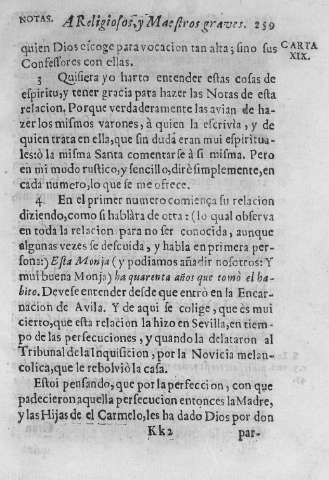 NOTAS. A Religiosos, y Maestros graves. 259
quien Dios escoge para vocacion tan alta; sino sus
CARTA
XIX.
Confessores con ellas.
3 Quisiera yo harto entender estas cosas de
espiritu, y tener gracia para hazer las Notas de esta
relacion. Porque verdaderamente las avian de ha-
zer los mismos varones, à quien la escrivia, y de
quien trata en ella, que sin duda eran mui espiritua-
les: ò la misma Santa comentarse à si misma. Pero
en mi modo rustico, y sencillo, dirè simplemente, en
cada numero, lo que se me ofrece.
4. En el primer numero comiença su relacion
diziendo, como si hablàra de otra: (lo qual observa
en toda la relacion para no ser conocida, aunque
algunas vezes se descuida, y habla en primera per-
sona:) Esta Monja (y podiamos añadir nosotros: Y
mui buena Monja) ha quarenta años que tomò el ha-
bito. Devese entender desde que entrò en la Encar-
nacion de Avila. Y de aqui se colige, que es mui
cierto, que esta relacion la hizo en Sevilla, en tiem-
po de las persecuciones, y quando la delataron al
Tribunal de la Inquisicion, por la Novicia melan-
colica, que le rebolviò la casa.
Estoi pensando, que por la perfeccion, con que
padecieron aquella persecucion entonces la Madre,
y las Hijas de el Carmelo, les ha dado Dios por don
Kk2 par-